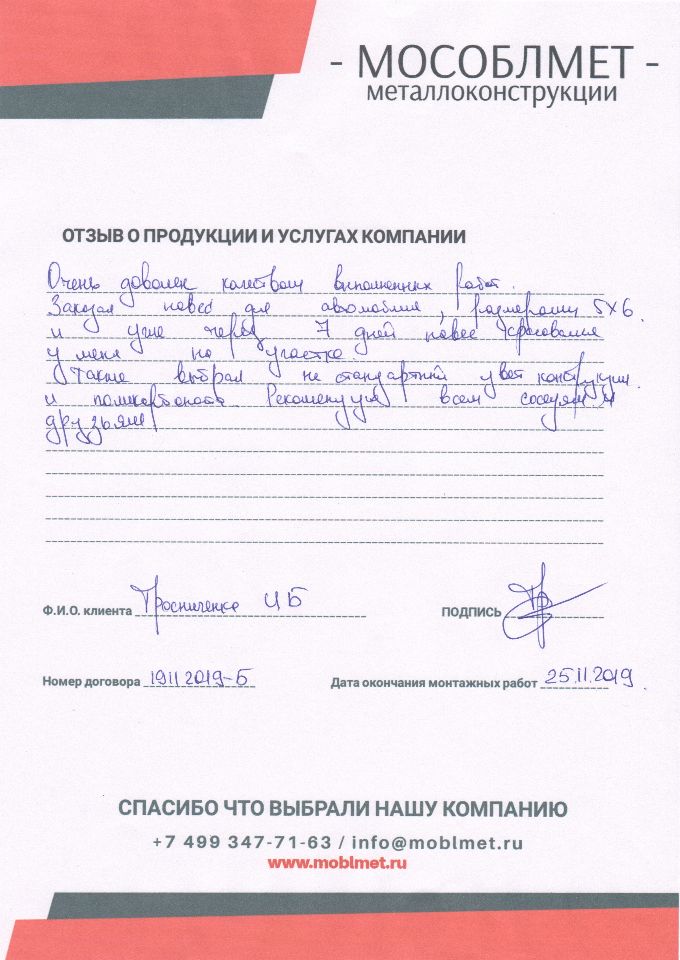 - МОСОБЛМЕТ -
металлоконструкции
ОТЗЫВ О ПРОДУКЦИИ И УСЛУГАХ КОМПАНИИ
Очень доволен качеством выполненных работ.
Заказал навес для автомобиля, размерами 5х6.
и уже через 7 дней навес красовался
у меня на участке
Также выбрал не стандартный цвет конструкции.
и поликарбоната Рекомендую всем соседям и
друзьям!
Ф.И.О. клиента И Б
ПОДПИСЬ
Номер договора 19112019-Б
Дата окончания монтажных работ 25.11.2019.
СПАСИБО ЧТО ВЫБРАЛИ НАШУ КОМПАНИЮ
+7 499 347-71-63 / info@moblmet.ru
www.moblmet.ru